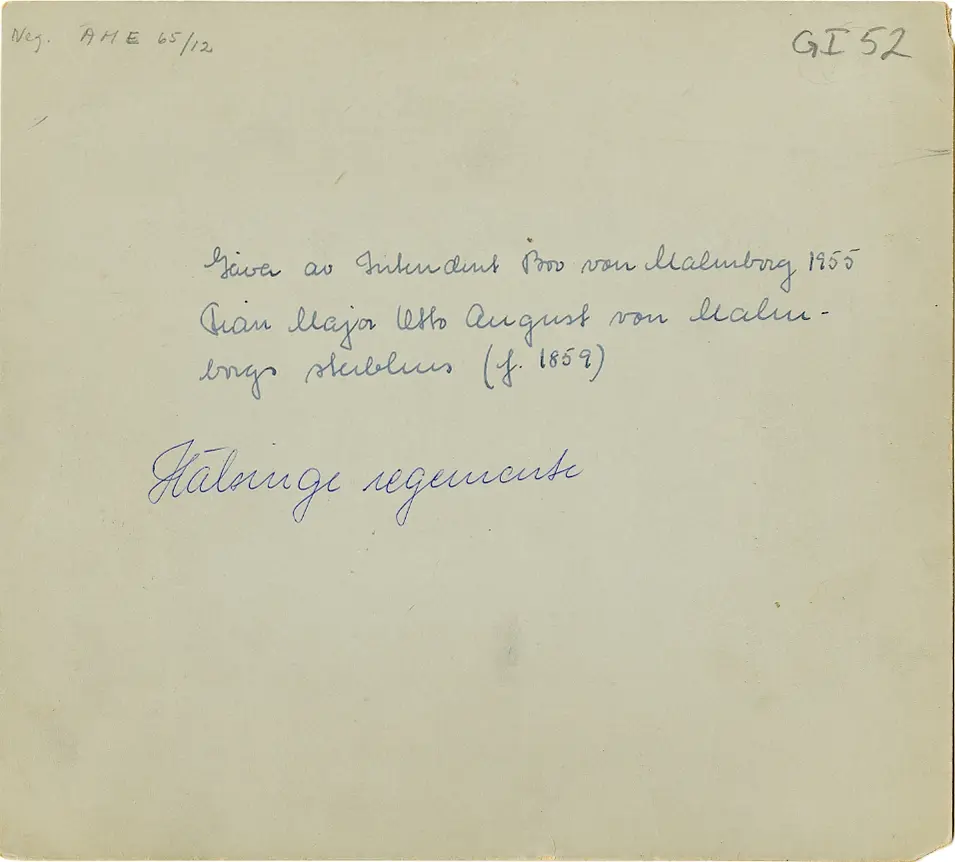 Neg. AME 65/12
GI 52
Gåva av Intendent Boo von Malmborg 1955
Från Major Otto August von Malm-
borgs sterbhus (f. 1859)
Hälsinge regemente